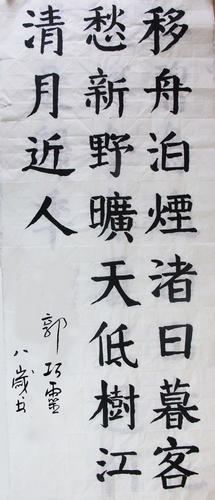 移舟泊煙渚日暮客
愁新野曠天低樹江
清月近人
郭巧靈
八歲书